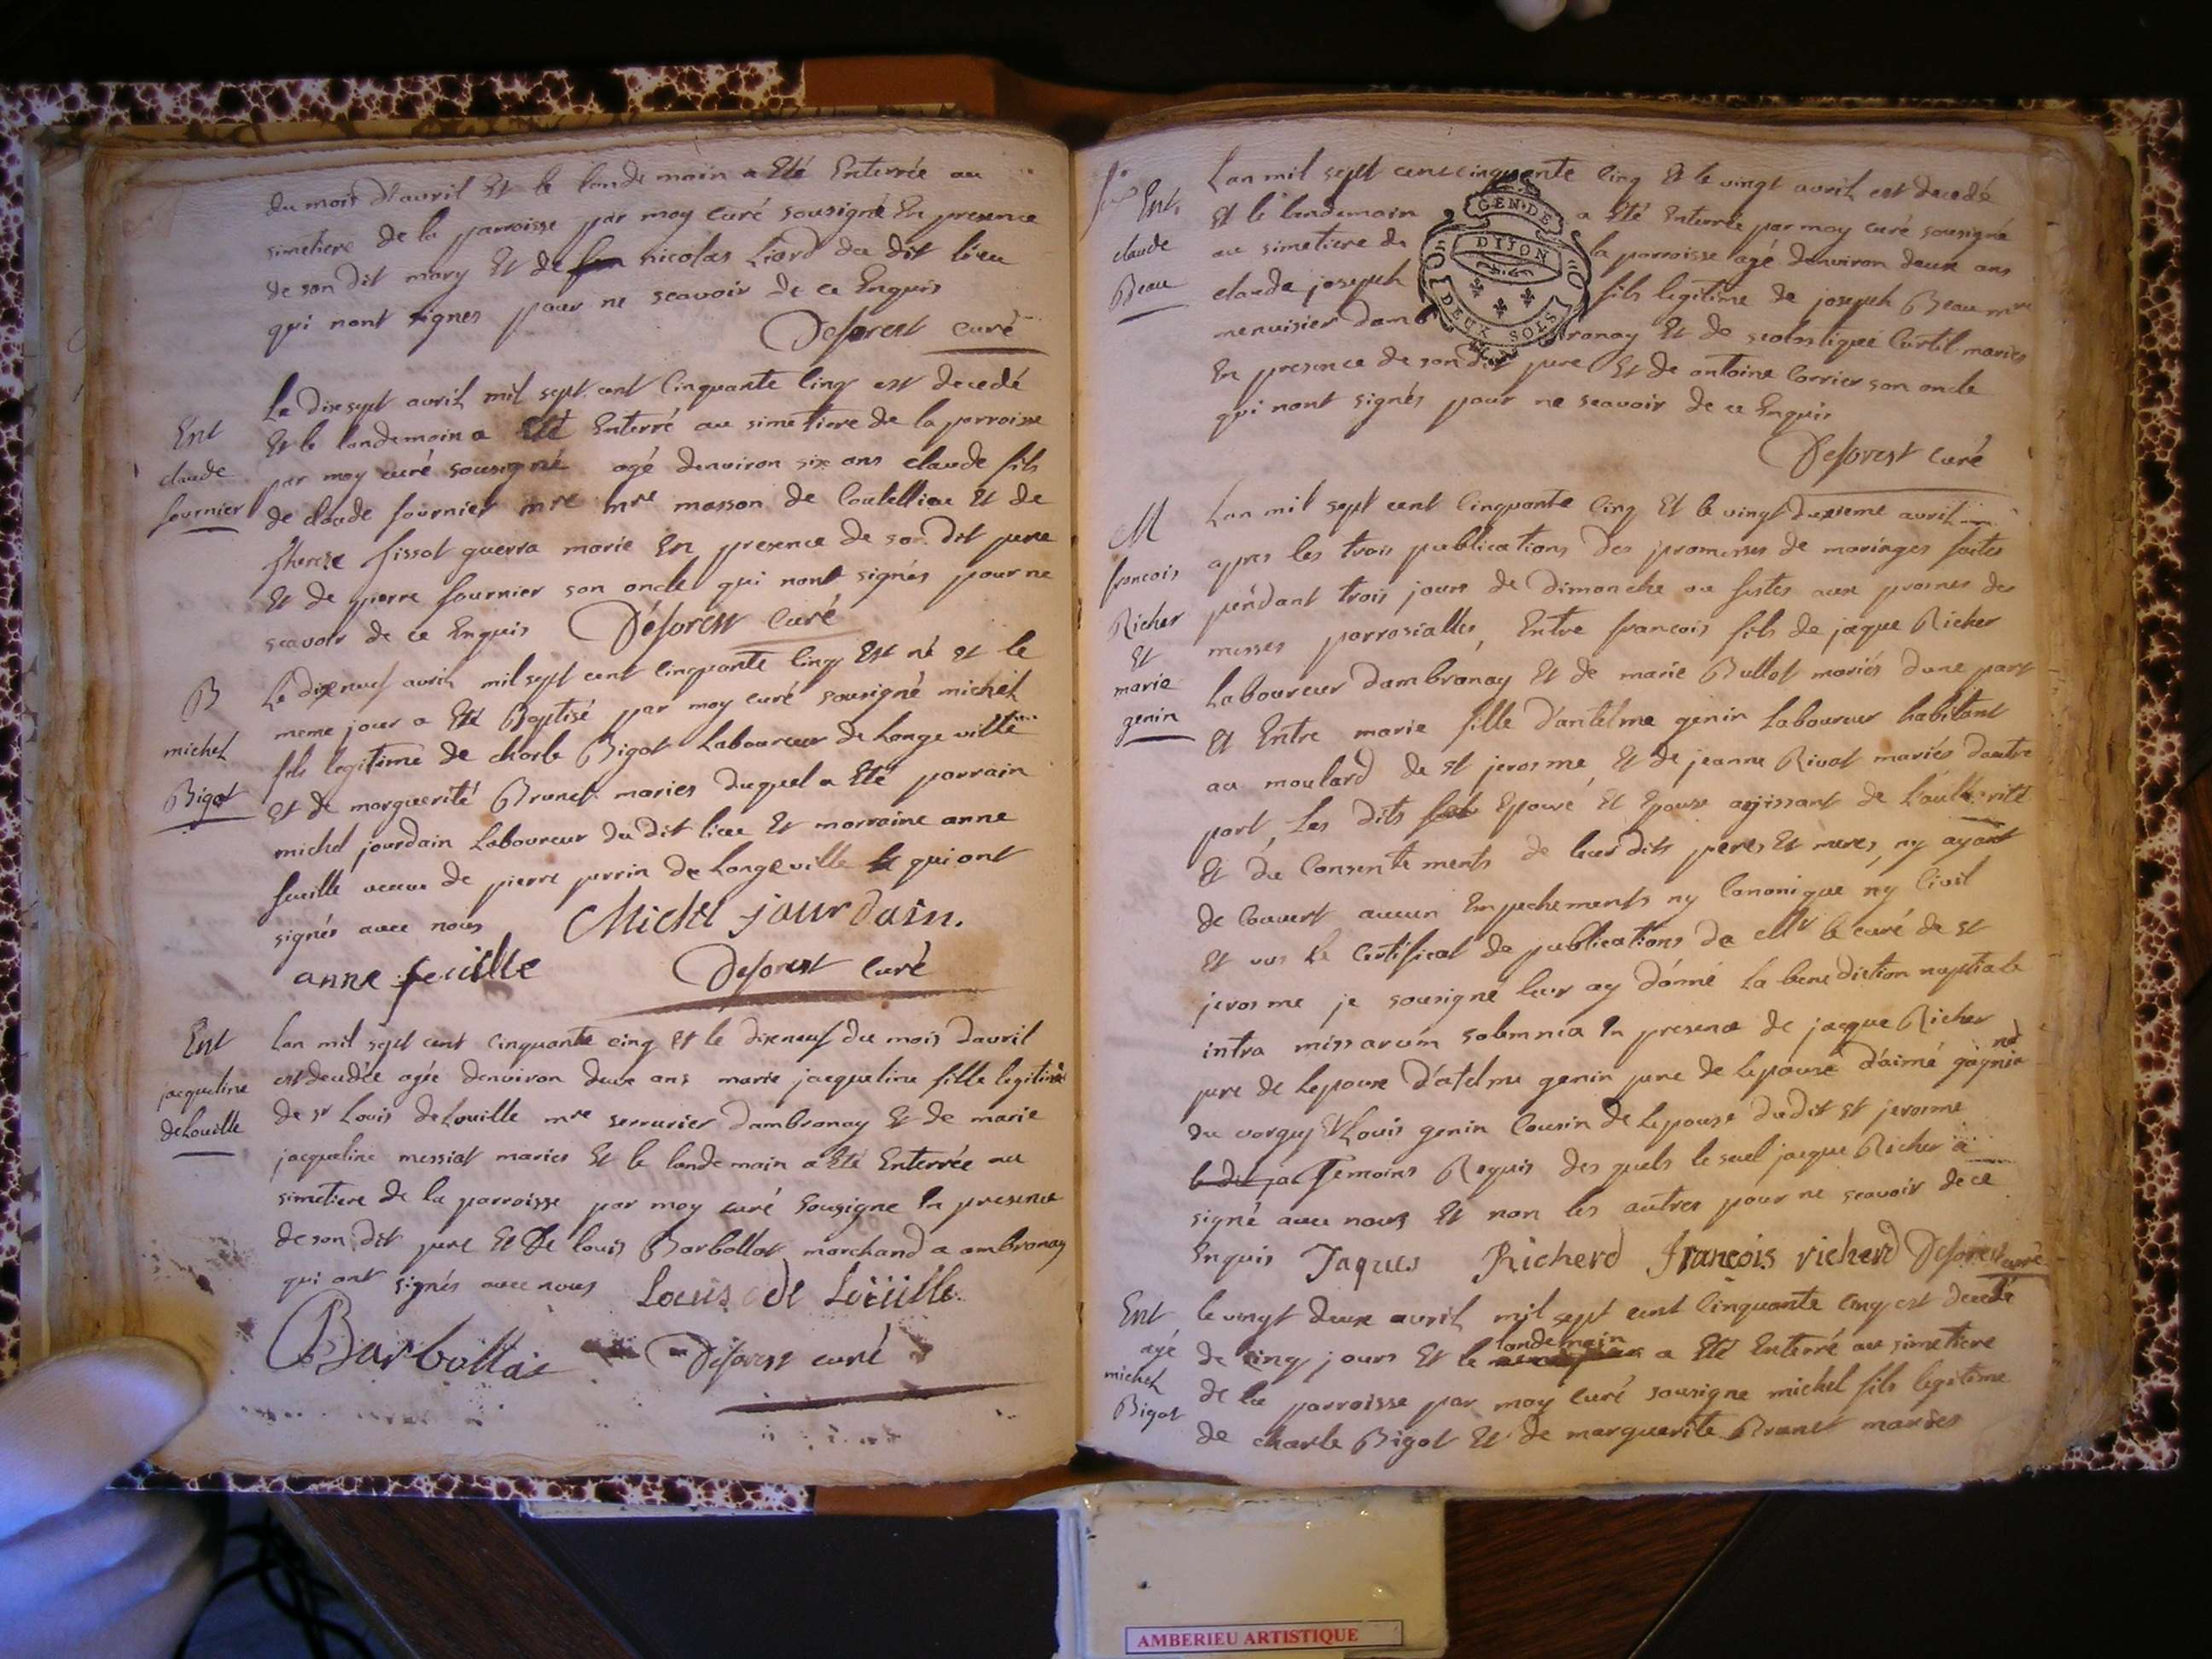 du mois d'avril Et le landemain a Eté Enterrée au
simetiere de la parroisse par moy curé sousigné En presence
de son dit mary Et de nicolas Liard du dit lieu
qui nont signes pour ne scavoir de ce Enquis
Deforest curé
Ent
claude
fournier
Le dixsept avril mil sept cent Cinquante Cinq est decedé
Et le landemain a Eté Enterré au simetiere de la parroisse
par moy curé sousigné agé denviron six ans claude fils
de claude fournier mre masson de Et de
therese fissot guerra marie En presence de son dit pere
Et de pierre fournier son oncle qui nont signés pour ne
scavoir de ce Enquis Déforest Curé
B
michel
Bigot
Le dixneuf avril mil sept cent cinquante Cinq Est né et le
meme jour a Eté Baptisé par moy curé sousigné michel
fils legitime de charle Bigot Laboureur de Longeville
Et de marguerité Brunet maries duquel a Eté parrain
michel jourdain Laboureur du dit lieu Et marraine anne
feuille veuve de pierre perrin de Longeville qui ont
signés avec nous Michel jourdain.
anne feuille Deforest Curé
Ent
jacqueline
deLouille
Lan mil sept cent cinquante cinq Et le dixneuf du mois davril
est decedée agée denviron deux ans marie jacqueline fille legitime
de sr Louis deLouille mre serrurier dambronay Et de marie
jacqueline messiat maries Et le landemain a Eté Enterrée au
simetiere de la parroisse par moy curé Sousigne En presence
de son dit pere Et De louis Barbollat marchand a ambronay
qui ont signés avec nous Louis de Loüille.
Barbollat Deforest curé
Ent
claude
Beau
Lan mil sept cent cinquante Cinq Et le vingt avril est decedé
Et le landemain a Eté Enterrée par moy curé sousigné
au simetiere de la parroisse agé denviron deux ans
claude joseph fils legitime de joseph Beau mre
menuisier dambronay Et de scolastique Curtil maries
En presence de son dit pere Et de antoine Corrier son oncle
qui nont signés pour ne scavoir de ce Enquis
Deforest Curé
GEN. DE
DIJON
DEUX SOLS
M
francois
Richer
Et
marie
genin
Lan mil sept cent Cinquante Cinq Et le vingt deuxieme avril
apres les trois publications des promesses de mariages faites
pendant trois jours de Dimanche ou festes aux prosnes des
messes parrosialles, Entre francois fils de jaque Richer
Laboureur dambronay Et de marie Bullot mariés dune part
Et Entre marie fille d'antelme genin Laboureur habitant
au moulard de st jerosme, Et de jeanne Rivat mariés dautre
part, Les dits Epoux Et Epouse agissant de L'autorité
Et du Consentements de leurdits peres Et meres, ny ayant
de Couvert aucun Empechements ny Canonique ny Civil
Et vus Le Certificat de publications de Mr le curé de st
jerosme je sousigné leur ay donné La benediction nuptiale
intra missarum solemnia En presence de jacque Richer
pere de Lepoux d'atelme genin pere de lepouse d'aimé
du vorgey Et Louis genin Cousin de Lepouse dudit st jerosme
Temoins Requis des quels le seul jacque Richer a
signé avec nous Et non les autres pour ne scavoir de ce
Enquis Jaques Richerd François richerd Deforest curé
Ent
agé
michel
Bigot
le vingt deux avril mil sept cent Cinquante Cinq est decedé
de cinq jours Et le landemain a Eté Enterré au simetiere
de la parroisse par moy Curé sousigne michel fils legitime
de charle Bigot Et de marguerite Brunet maries
AMBERIEU ARTISTIQUE